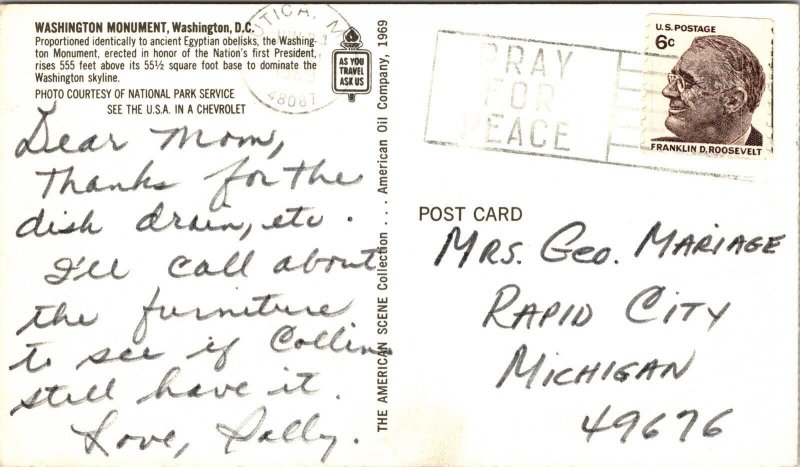 WASHINGTON MONUMENT, Washington, D.C.
Proportioned identically to ancient Egyptian obelisks, the Washing-
ton Monument, erected in honor of the Nation's first President,
rises 555 feet above its 55½ square foot base to dominate the
Washington skyline.
PHOTO COURTESY OF NATIONAL PARK SERVICE
SEE THE U.S.A. IN A CHEVROLET
UTICA, M
48087
AS YOU
TRAVEL
ASK US
THE AMERICAN SCENE Collection . . . American Oil Company, 1969
PRAY
FOR
PEACE
U.S. POSTAGE
6c
FRANKLIN D. ROOSEVELT
Dear Mom,
Thanks for the
dish drain, etc.
I'll call about
the furniture
to see if Collins
still have it.
Love, Sally.
POST CARD
MRS. GEO. MARIAGE
RAPID CITY
MICHIGAN
49676